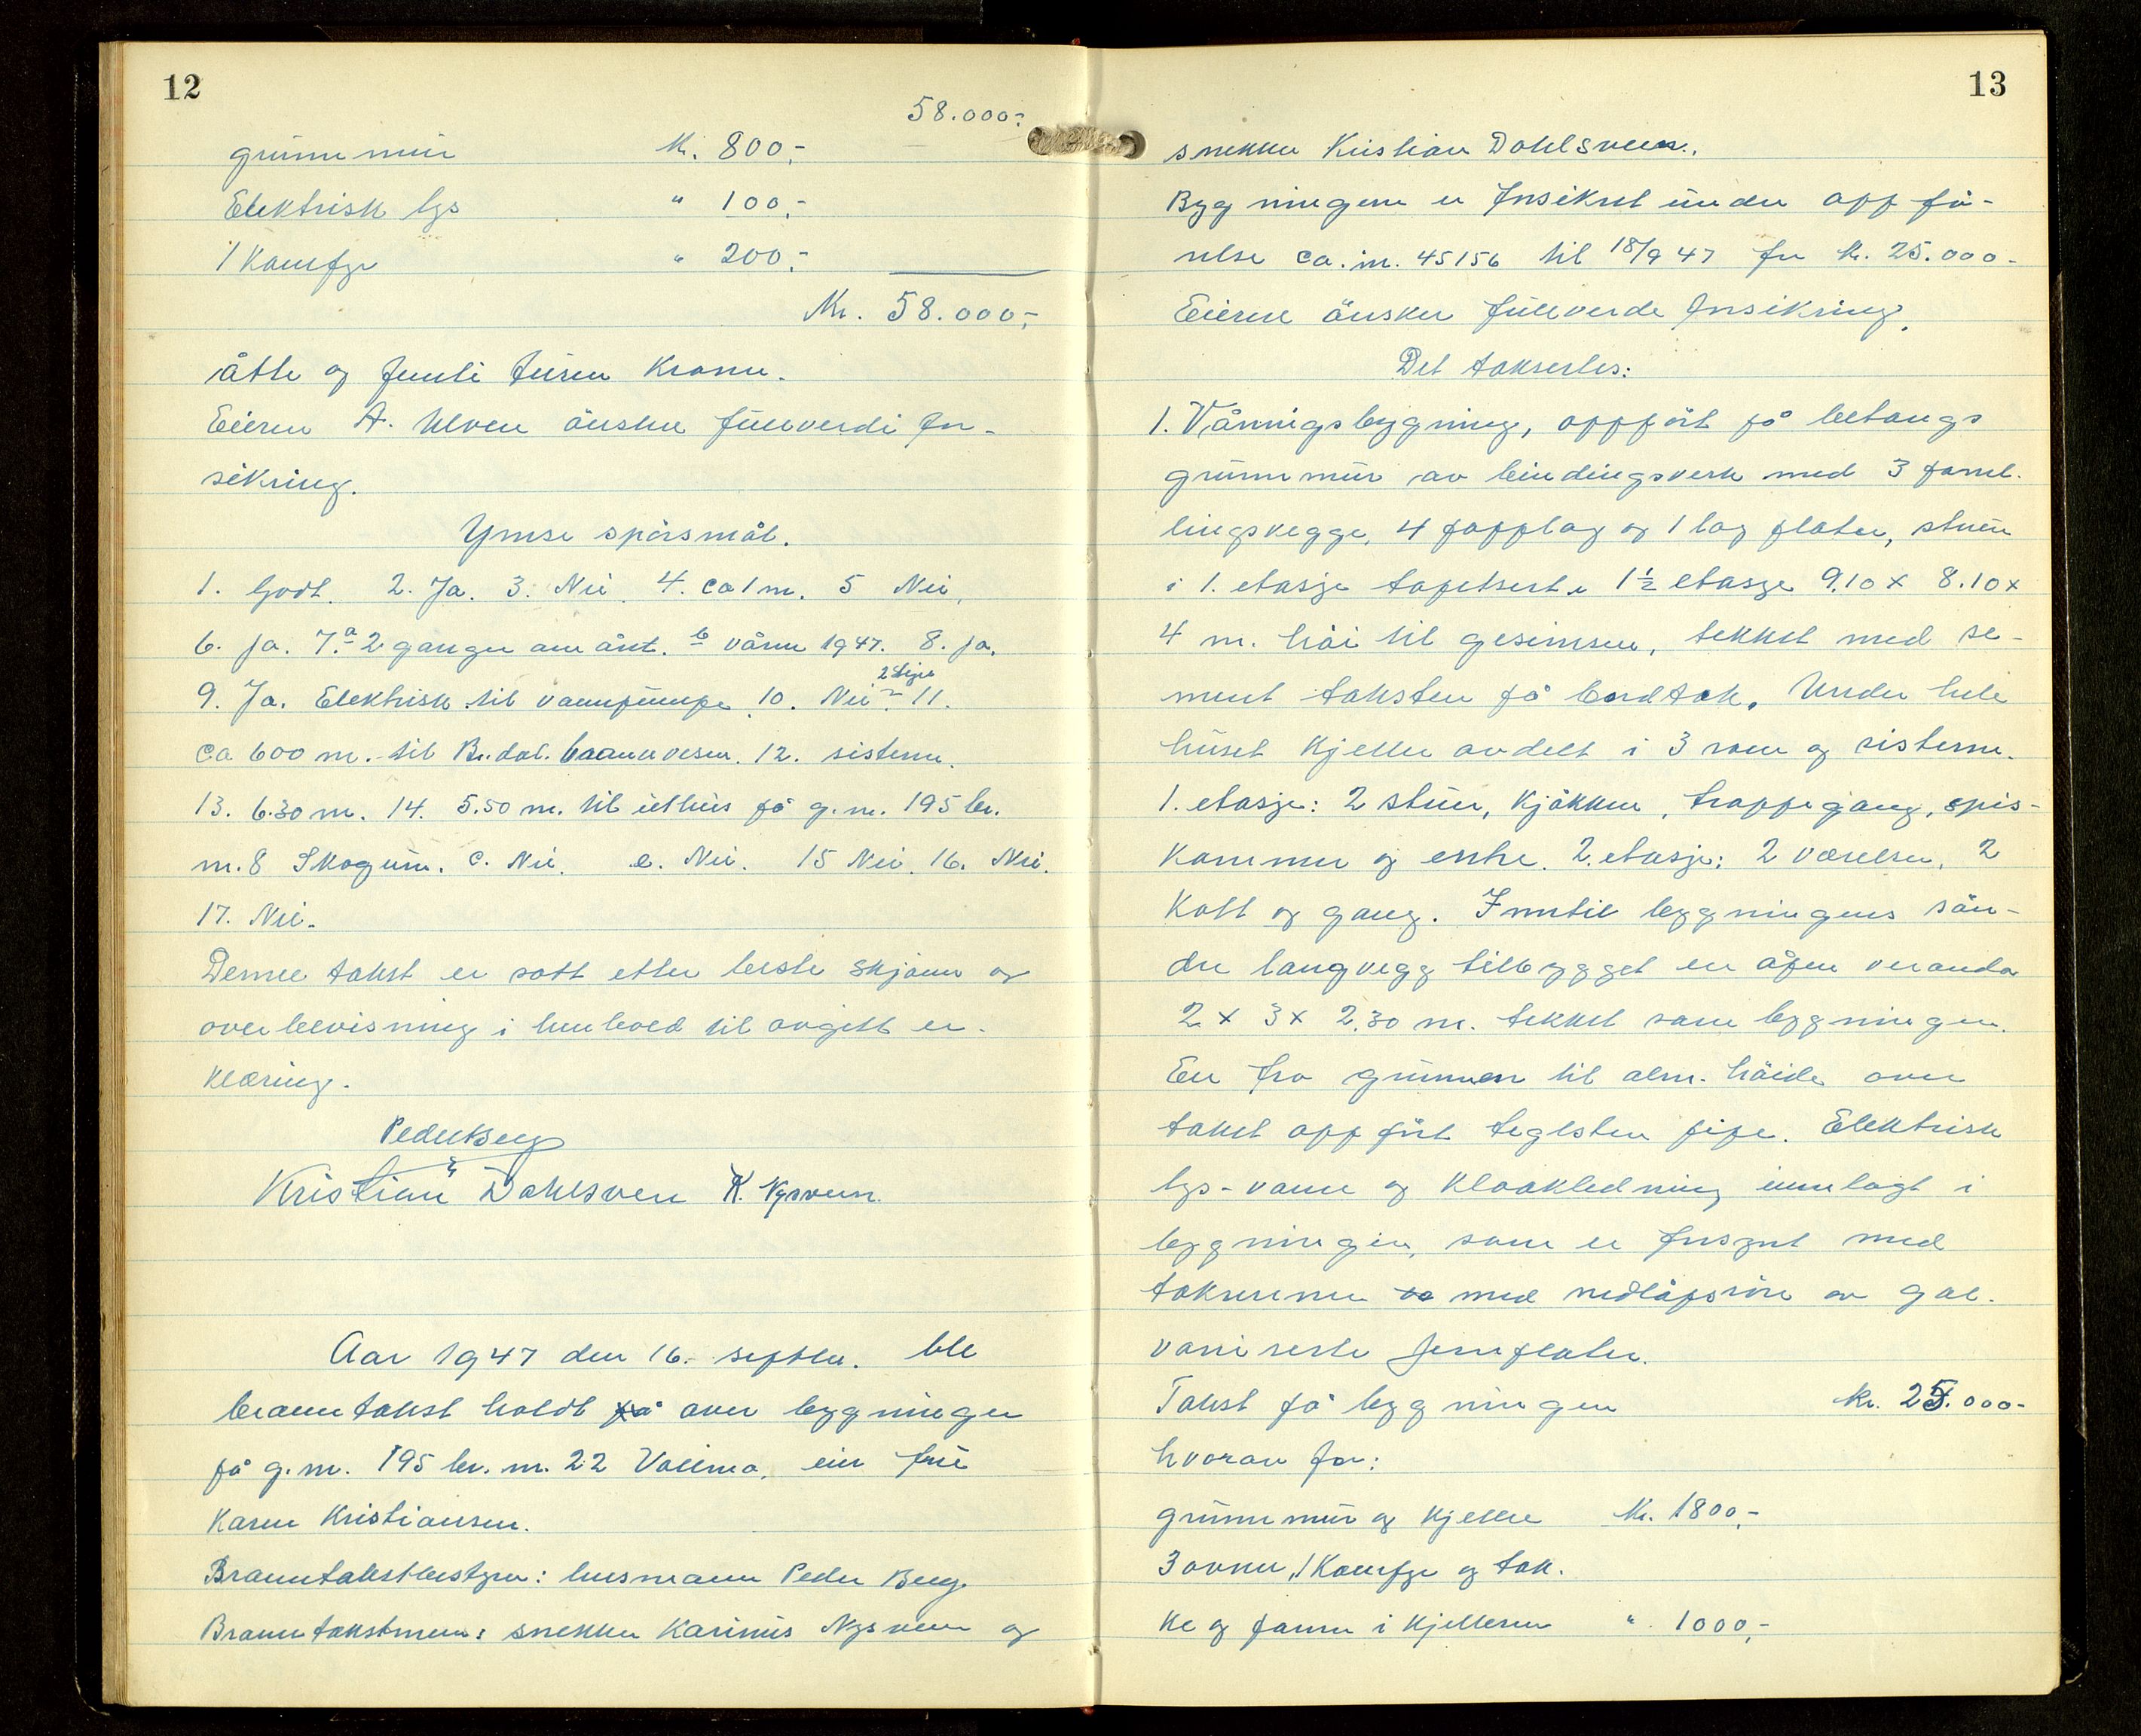 12
58.000.-
grunnmur Kr. 800,-
Elektrisk lys " 100,-
1 Komfyr " 200,-
Kr. 58.000,-
åtte og femti tusen kroner.
Eieren A. Ulven önsker fullverdi for-
sikring.
Ymse spörsmål.
1. Godt. 2. Ja. 3. Nei. 4. ca 1 m. 5 Nei.
6. Ja. 7. a 2 ganger om året. b våren 1947. 8. Ja.
2 stiger
9. Ja. Elektrisk til vannpumpe 10. Nei. 11.
ca 600 m. til Br.dal. brannvesen. 12. sisterne.
13. 6.30 m. 14. 5.50 m. til uthus på g.nr. 195 br.
nr. 8 Skogum. c. Nei. e. Nei. 15 Nei. 16. Nei.
17. Nei.
Denne takst er satt etter beste skjönn og
overbevisning i henhold til avgitt er-
klæring.
Peder Berg
Kristian Dahlsveen K. Nysveen.
Aar 1947 den 16. septbr. ble
branntakst holdt på over bygninger
på g.nr. 195 br.nr. 22 Volleno, eier frue
Karen Kristiansen.
Branntakstbestyrer: lensmann Peder Berg.
Branntakstmenn: snekker Karinius Nysveen og
13
snekker Kristian Dahlsveen.
Bygningen er forsikret under oppfö-
relse ca. nr. 45156 til 18/9 47 for kr. 25.000-
Eieren önsker fullverde forsikring.
Det takseres:
1. Våningsbygning, oppfört på betongs
grunnmur av bindingsverk med 3 panel-
lingsvegge, 4 papplag og 1 lag plater, stuen
i 1. etasje tapetsert. 1 1/2 etasje 9.10 x 8.10 x
4 m. höi til gesimsen, tekket med se-
ment taksten på bordtak. Under hele
huset kjeller avdelt i 3 rom og sisterne.
1. etasje: 2 stuer, kjökken, trappegang, spis-
kammer og entre. 2. etasje: 2 værelser, 2
kott og gang. Inntil bygningens sön-
dre langvegg tilbygget en åpen veranda
2 x 3 x 2.30 m. tekket som bygningen.
En fra grunnen til alm. höide over
taket oppfört teglsten pipe. Elektrisk
lys- vann og kloakledning innlagt i
bygningen, som er forsynt med
takrenner med nedlöpsrör av gal-
vaniserte jernplater.
Takst på bygningen kr. 25.000-
hvorav for:
grunnmur og kjeller Kr. 1800,-
3 ovner, 1 Komfyr og tak.
ke og panne i kjelleren " 1000,-